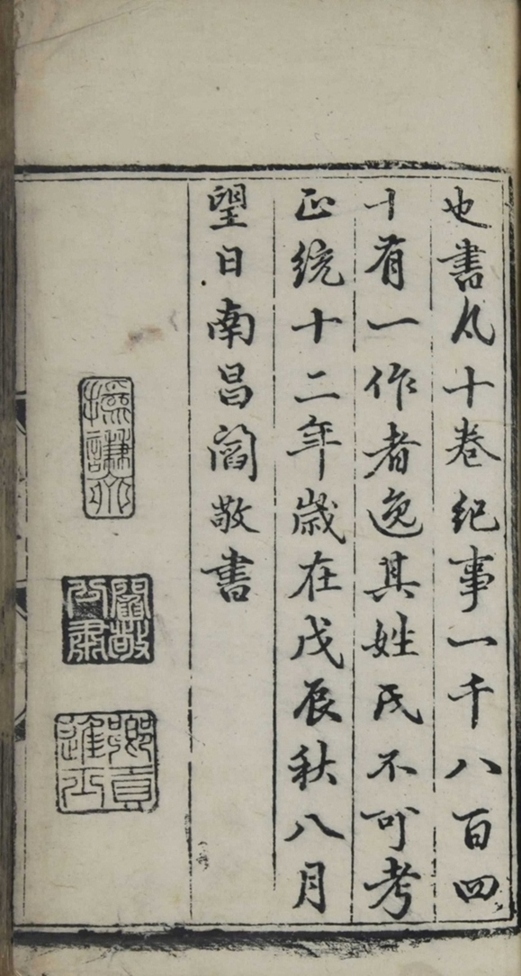 也書凡十卷紀事一千八百四
十有一作者逸其姓氏不可考
正統十二年歲在戊辰秋八月
望日南昌閻敬書
撝謙齋
閻敬公肅
鄉貢進士